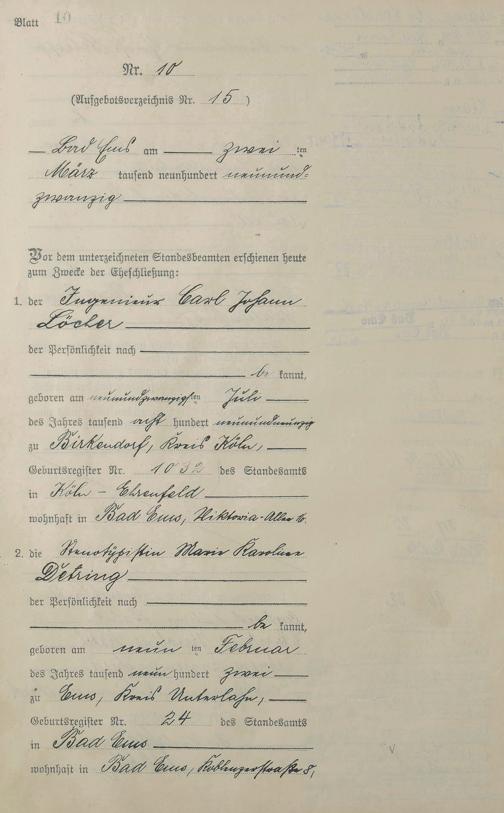 Blatt 10
Nr. 10
(Aufgebotsverzeichnis Nr. 15)
Bad Ems am zwei ten
März tausend neunhundert neunund=
zwanzig
Vor dem unterzeichneten Standesbeamten erschienen heute
zum Zwecke der Eheschließung:
1. der Ingenieur Carl Johann
Löcher
der Persönlichkeit nach
be kannt,
geboren am neunundzwanzigsten Juli
des Jahres tausend acht hundert neunundneunzig
zu Birkendorf, Kreis Köln,
Geburtsregister Nr. 1032 des Standesamts
in Köln - Ehrenfeld
wohnhaft in Bad Ems, Viktoria-Allee
2. die Stenotypistin Marie Karoline
Detring
der Persönlichkeit nach
be kannt,
geboren am neun ten Februar
des Jahres tausend neun hundert zwei
zu Ems, Kreis Unterlahn,
Geburtsregister Nr. 24 des Standesamts
in Bad Ems
wohnhaft in Bad Ems, Koblenzerstraße 8,